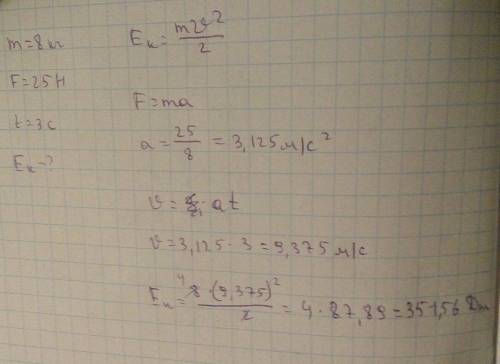 m=8кг
F=25Н
t=3с
Eк-?
Eк = mv²/2
F=ma
a = 25/8 = 3,125 м/с²
v = at
v=3,125·3=9,375 м/с
Eк = 8·(9,375)²/2 = 4·87,89=351,56 Дж